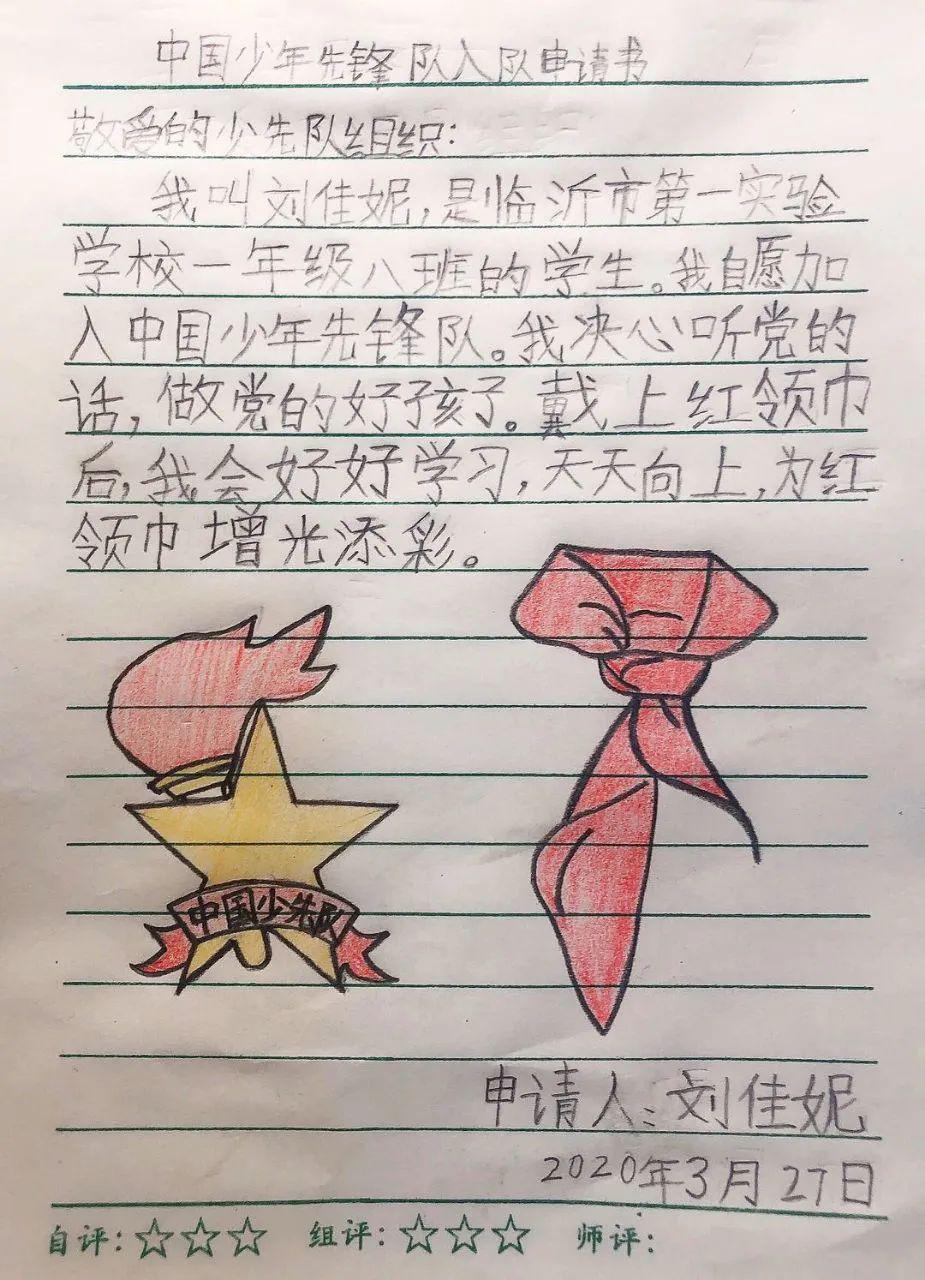 中国少年先锋队入队申请书
敬爱的少先队组织:
我叫刘佳妮,是临沂市第一实验
学校一年级八班的学生。我自愿加
入中国少年先锋队。我决心听党的
话,做党的好孩子。戴上红领巾
后,我会好好学习,天天向上,为红
领巾增光添彩。
中国少先队
申请人:刘佳妮
2020年3月27日
自评:☆☆☆ 组评:☆☆☆ 师评: